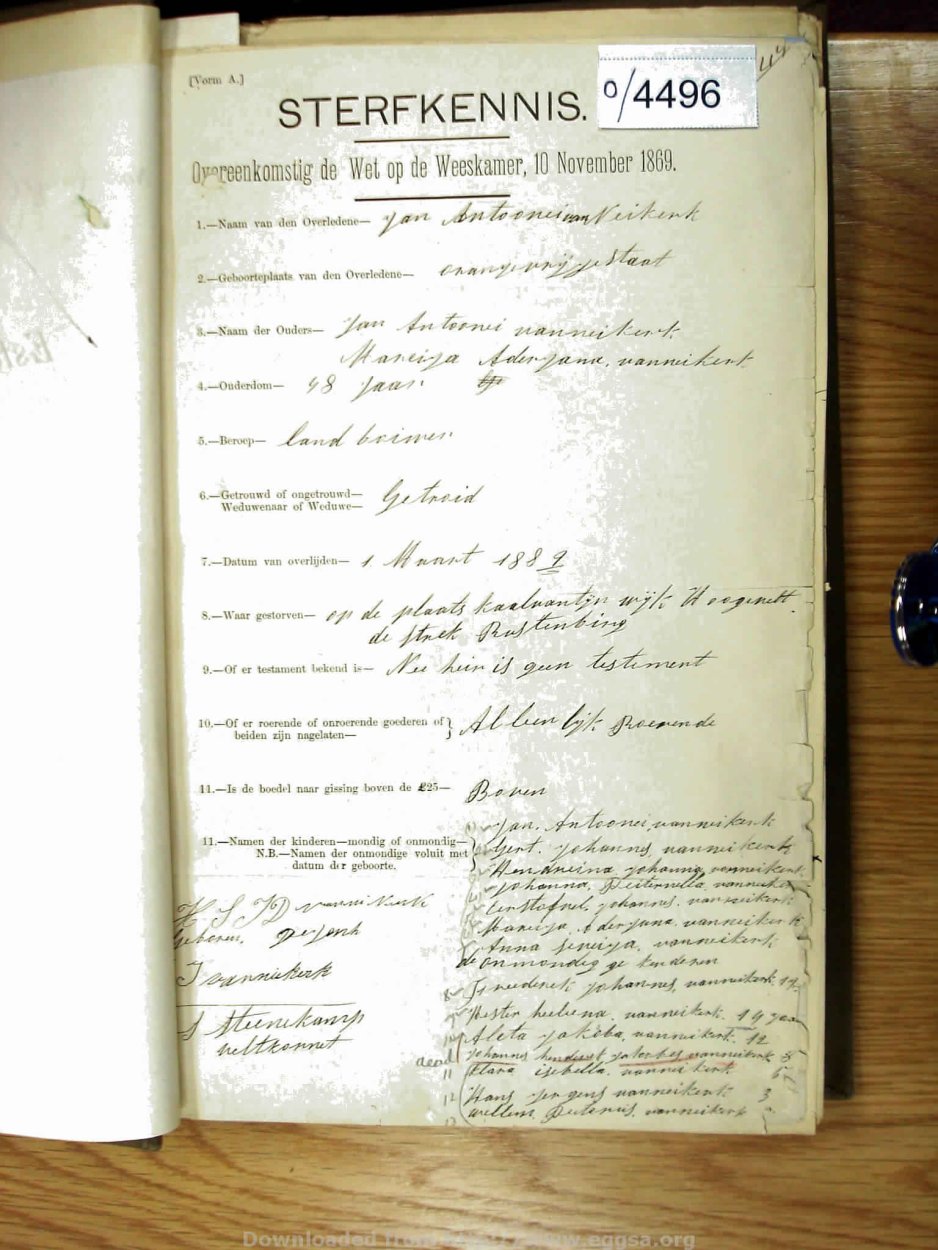 [Vorm A.]
44
STERFKENNIS.
0/4496
Overeenkomstig de Wet op de Weeskamer, 10 November 1869.
1.—Naam van den Overledene— Jan Antoonei van Neikerk
2.—Geboorteplaats van den Overledene— oranjevrij je Staat
3.—Naam der Ouders— Jan Antoonei vanneikerk
Mareiya Aderjana, vanneikerk
4.—Ouderdom— 48 Jaar
5.—Beroep— land
6.—Getrouwd of ongetrouwd—
Weduwenaar of Weduwe— Getroid
7.—Datum van overlijden— 1 Maart 1889
8.—Waar gestorven— op de plaats wijk Hoogevelt
de strek Rustenburg
9.—Of er testament bekend is— Nee hein is geen testement
10.—Of er roerende of onroerende goederen of
beiden zijn nagelaten— Alleen lijk Roerende
11.—Is de boedel naar gissing boven de £25— Boven
11.—Namen der kinderen—mondig of onmondig—
N.B.—Namen der onmondige voluit met
datum der geboorte.
Jan Antoonei vanneikerk
Gert Johannes vanneikerk
Hendreina Johanna vanneikerk
Johanna, vanneikerk
Johannes, vanneikerk
Mareiya, Aderjana, vanneikerk
Anna vanneikerk
de onmondig ge kinderen
Freederick Johannes, vanneikerk, 17
Hester heelena, vanneikerk 14 Jaar
Aleta Jakoba, vanneikerk 12
dood Johannes vanneikerk 8
11 Klara isebella, vanneikerk 5
12 Hans Jergens vanneikerk 3
13 willem Peeterus, vanneikerk
H S J D vanneikerk
Geboren, De Jonh
J vanniekerk
J Steenekamp
veltkornet
Downloaded from www.eggsa.org